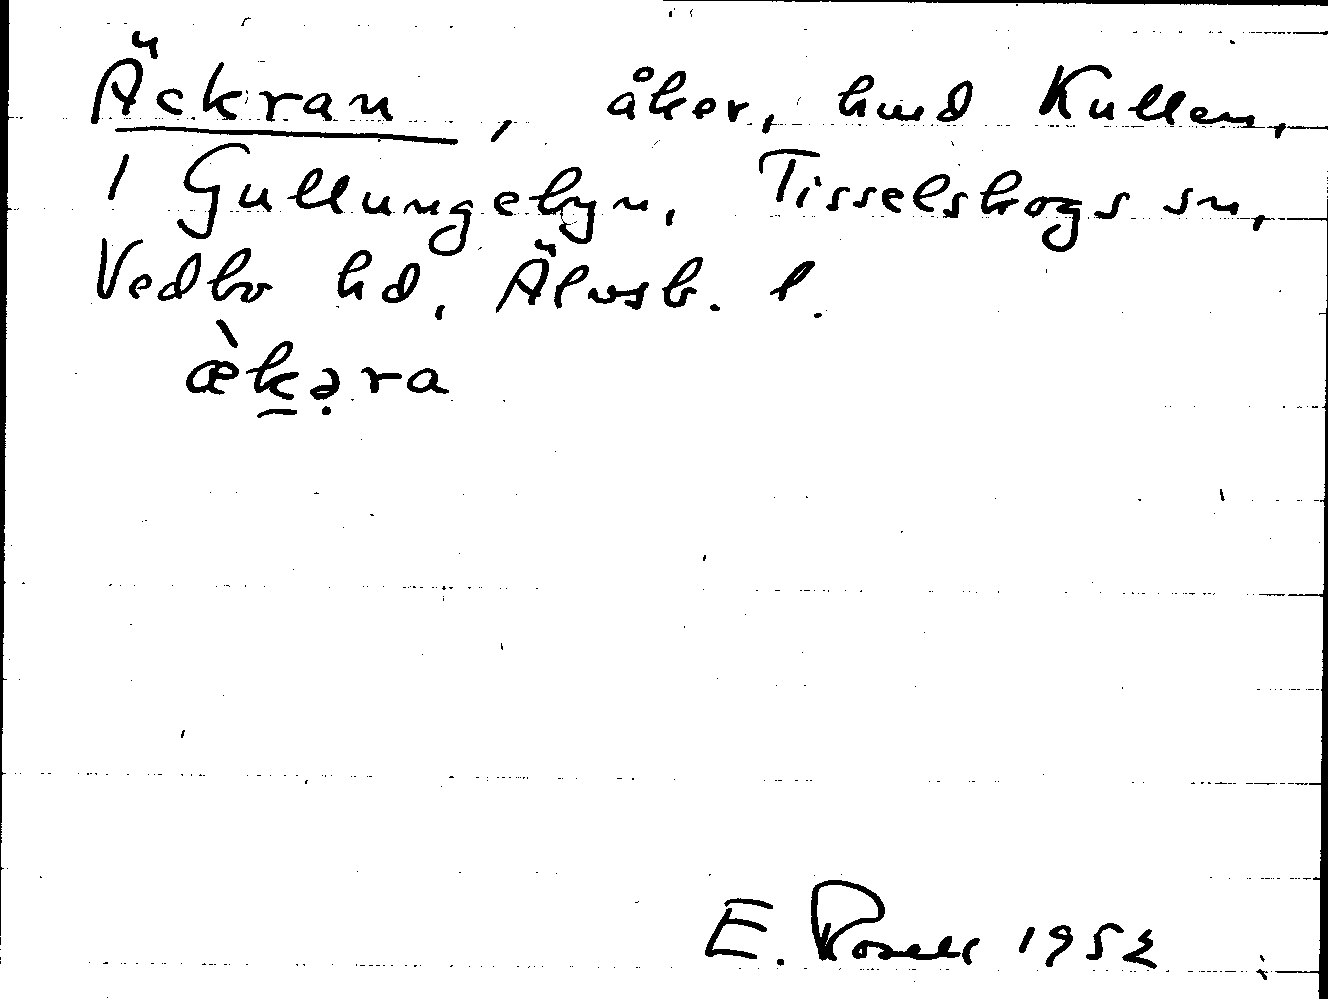 Äckran, åker, hmd Kullen,
1 Gullungebyn, Tisselskogs sn,
Vedbo hd, Älvsb. l.
æ̀k̠ə̣ra
E. Rosell 1952